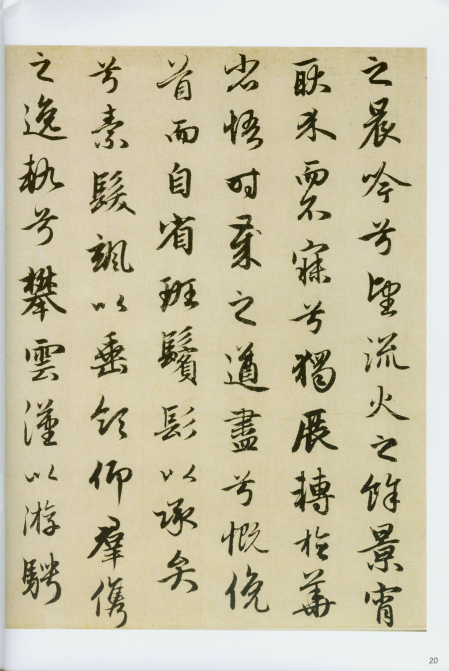 之晨吟兮望流火之餘景宵
耿介而不寐兮獨展轉於華
省悟時歲之遒盡兮慨俛
首而自省班鬢髟以承弁
兮素髮颯以垂領仰羣儁
之逸軌兮攀雲漢以游騁
20